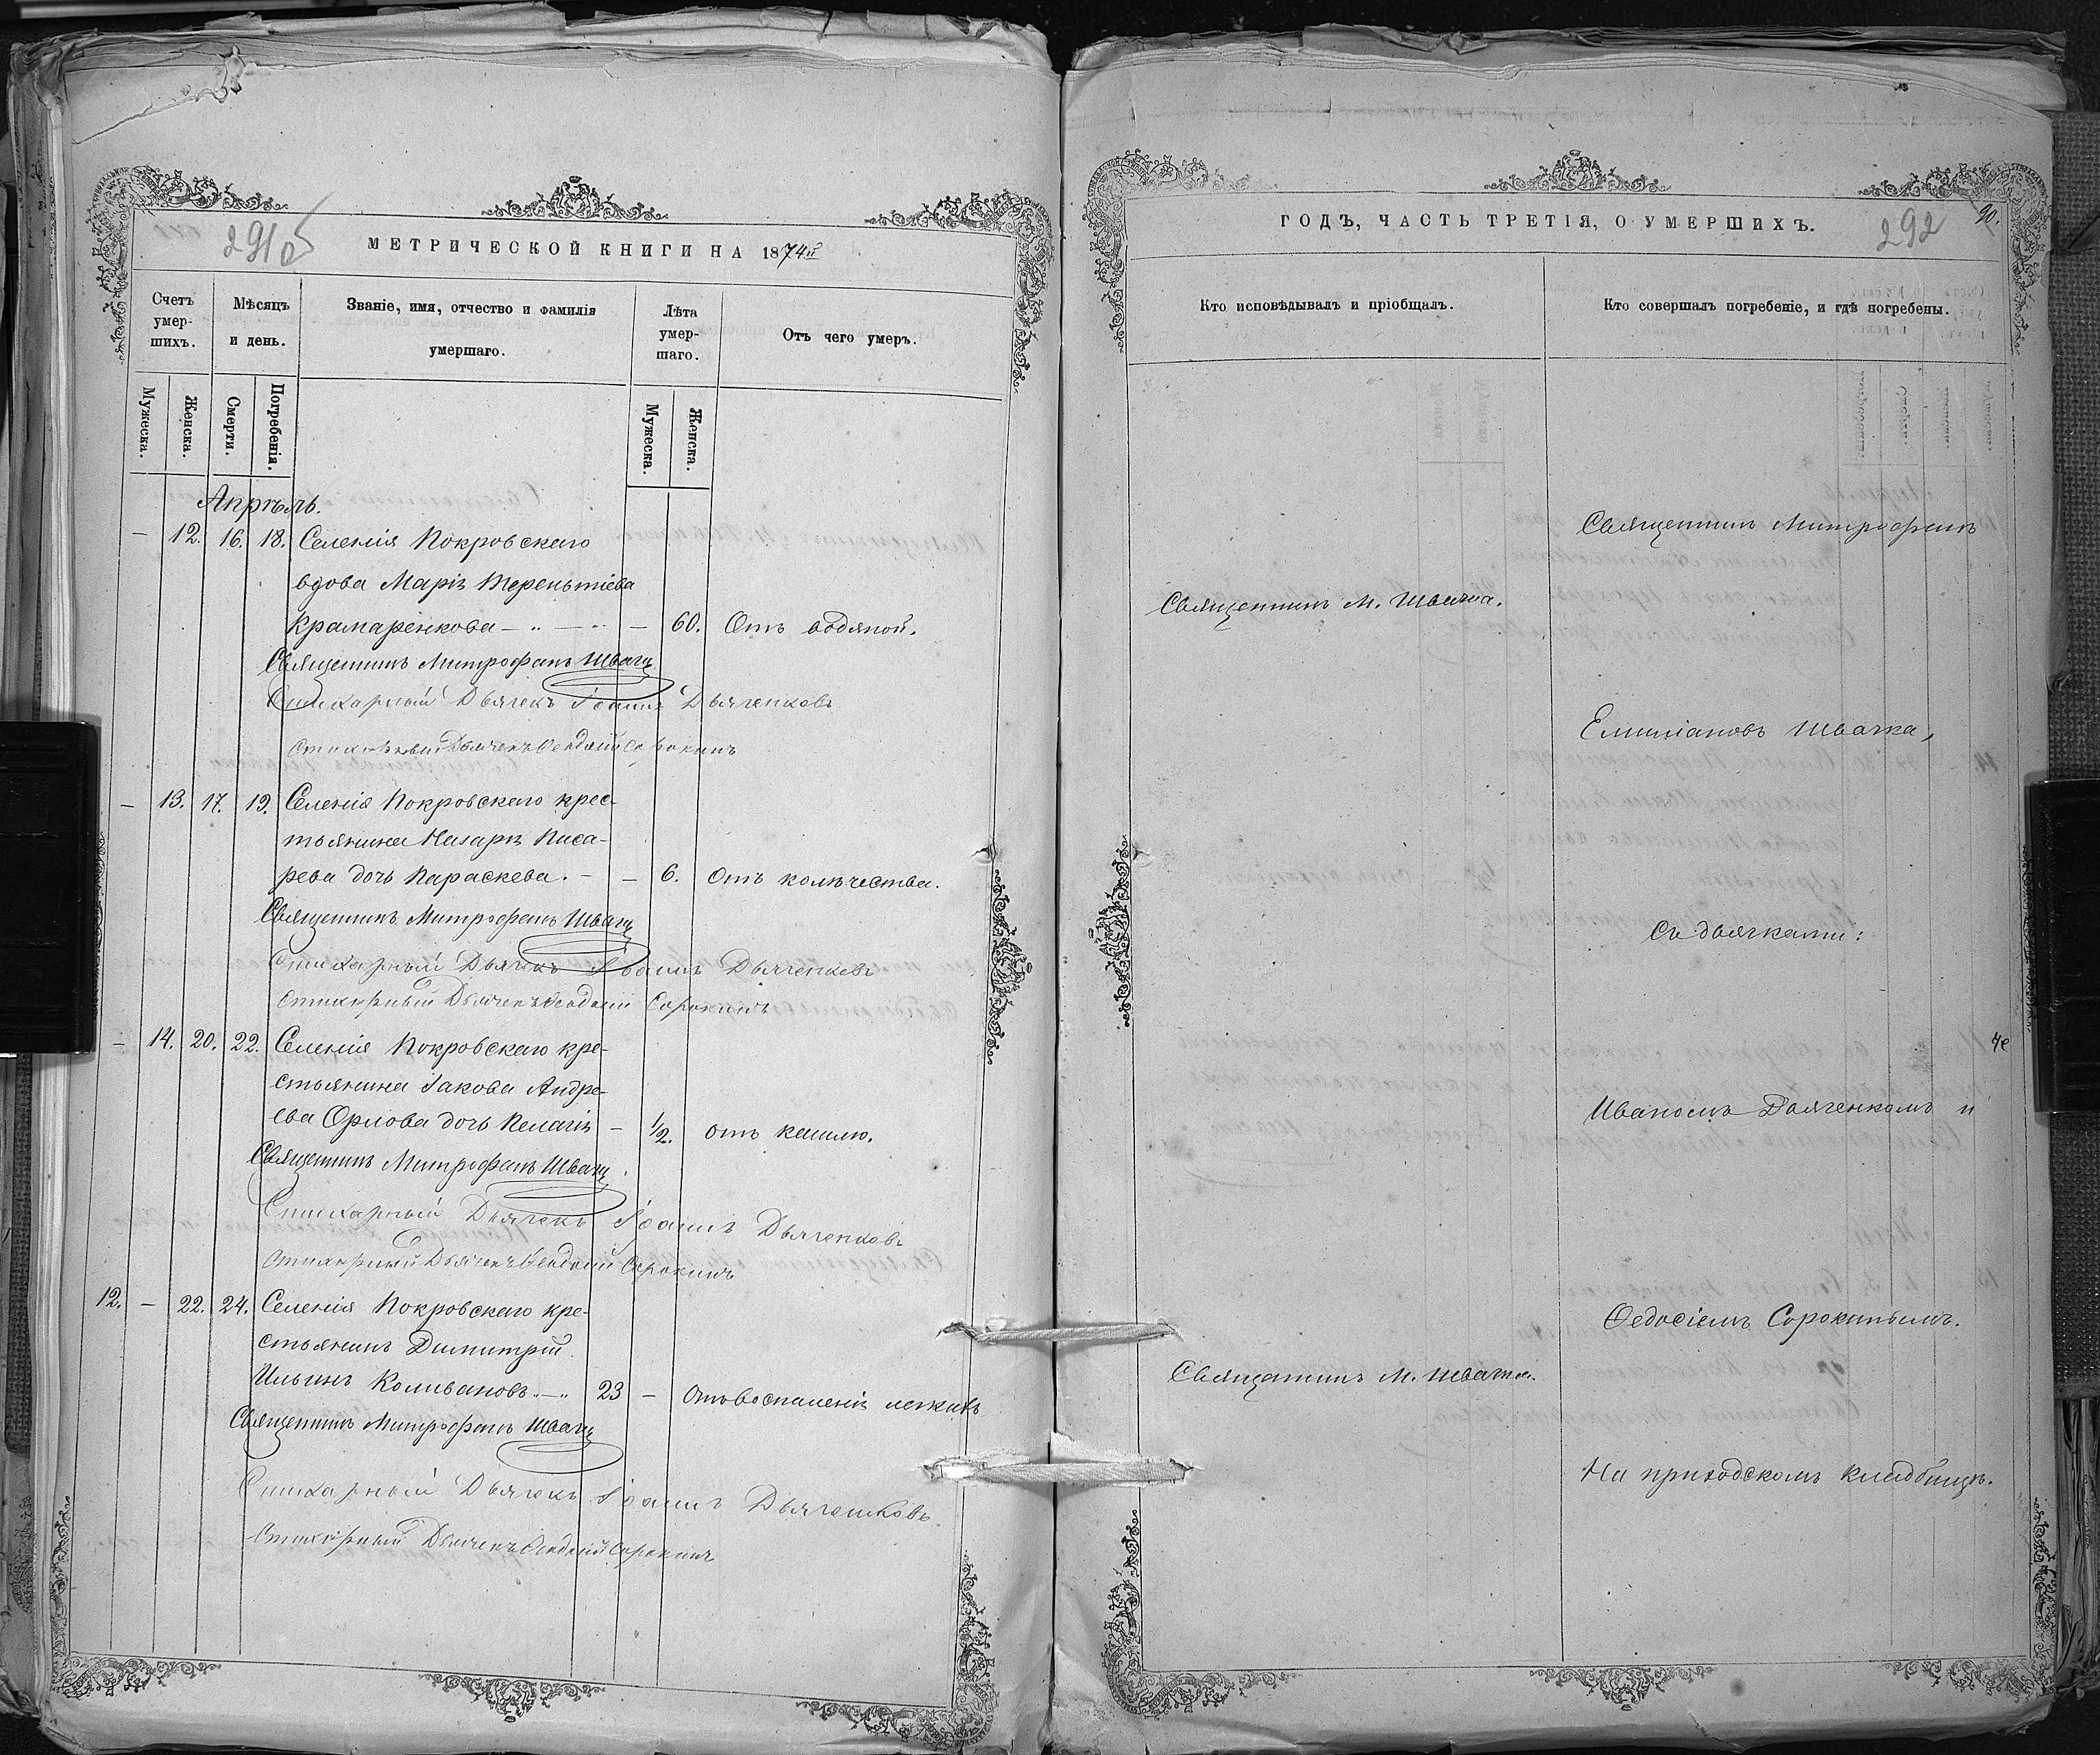 291об
МЕТРИЧЕСКОЙ КНИГИ НА 1874й
Счетъ умер-шихъ.
Мѣсяцъ и день.
Званіе, имя, отчество и фамилія умершаго.
Лѣта умер-шаго.
Отъ чего умеръ.
Мужеска.
Женска.
Смерти.
Погребенія.
Мужеска.
Женска.
Апрѣль.
— 12. 16. 18. Селенія Покровскаго
вдова Марія Терентіева
Крамаренкова — 60. Отъ водяной.
Священникъ Митрофанъ Швачка
Стихарный Дьячекъ Іоаннъ Дьяченковъ
Стихарный Дьячекъ Ѳеодосій Сорокинъ
— 13. 17. 19. Селенія Покровскаго крес-
тьянина Назарія Писа-
рева дочь Параскева. — — 6. Отъ колѣчества.
Священникъ Митрофанъ Швачка
Стихарный Дьячекъ Іоаннъ Дьяченковъ
Стихарный Дьячекъ Ѳеодосій Сорокинъ
— 14. 20. 22. Селенія Покровскаго кре-
стьянина Іакова Андре-
ева Орлова дочь Пелагія — 1/2. отъ кашлю.
Священникъ Митрофанъ Швачка
Стихарный Дьячекъ Іоаннъ Дьяченковъ
Стихарный Дьячекъ Ѳеодосій Сорокинъ
12. — 22. 24. Селенія Покровскаго кре-
стьянинъ Димитрій
Ильинъ Коливановъ — 23 — Отъ воспаленія легкихъ
Священникъ Митрофанъ Швачка
Стихарный Дьячекъ Іоаннъ Дьяченковъ
Стихарный Дьячекъ Ѳеодосій Сорокинъ
ГОДЪ, ЧАСТЬ ТРЕТІЯ, О УМЕРШИХЪ.
292
90.
Кто исповѣдывалъ и пріобщалъ.
Кто совершалъ погребеніе, и гдѣ погребены.
Священникъ Митрофанъ
Священникъ М. Швачка.
Емиліановъ Швачка,
съ дьячками:
Иваномъ Дьяченкомъ и
Ѳедосіемъ Сорокинымъ.
Священникъ М. Швачка.
На приходскомъ кладбищѣ.